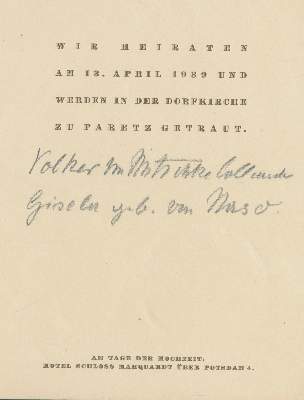 WIR HEIRATEN
AM 13. APRIL 1939 UND
WERDEN IN DER DORFKIRCHE
ZU PARETZ GETRAUT.
Volker von
Gisela geb. von
AM TAGE DER HOCHZEIT:
HOTEL SCHLOSS MARQUARDT ÜBER POTSDAM 4.